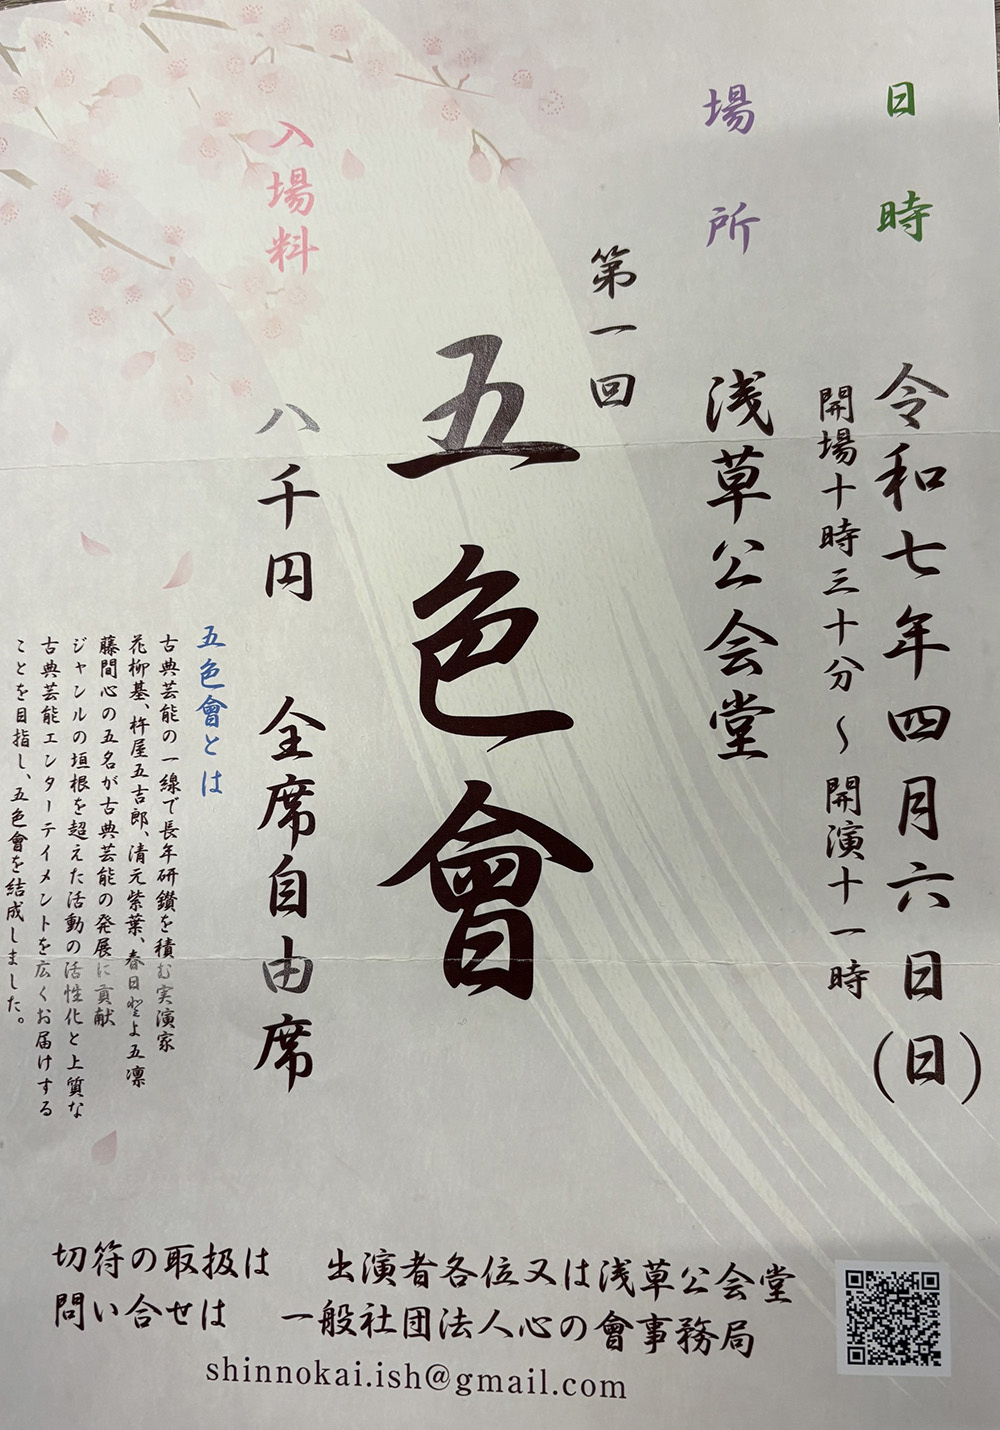 日時　令和七年四月六日（日）
開場十時三十分～開演十一時
場所　浅草公会堂
第一回
五色會
入場料　八千円　全席自由席
五色會とは
古典芸能の一線で長年研鑽を積む実演家
花柳基、杵屋五吉郎、清元紫葉、春日とよ五凛
藤間心の五名が古典芸能の発展に貢献
ジャンルの垣根を超えた活動の活性化と上質な
古典芸能エンターテイメントを広くお届けする
ことを目指し、五色會を結成しました。
切符の取扱は　出演者各位又は浅草公会堂
問い合せは　一般社団法人心の會事務局
shinnokai.ish@gmail.com